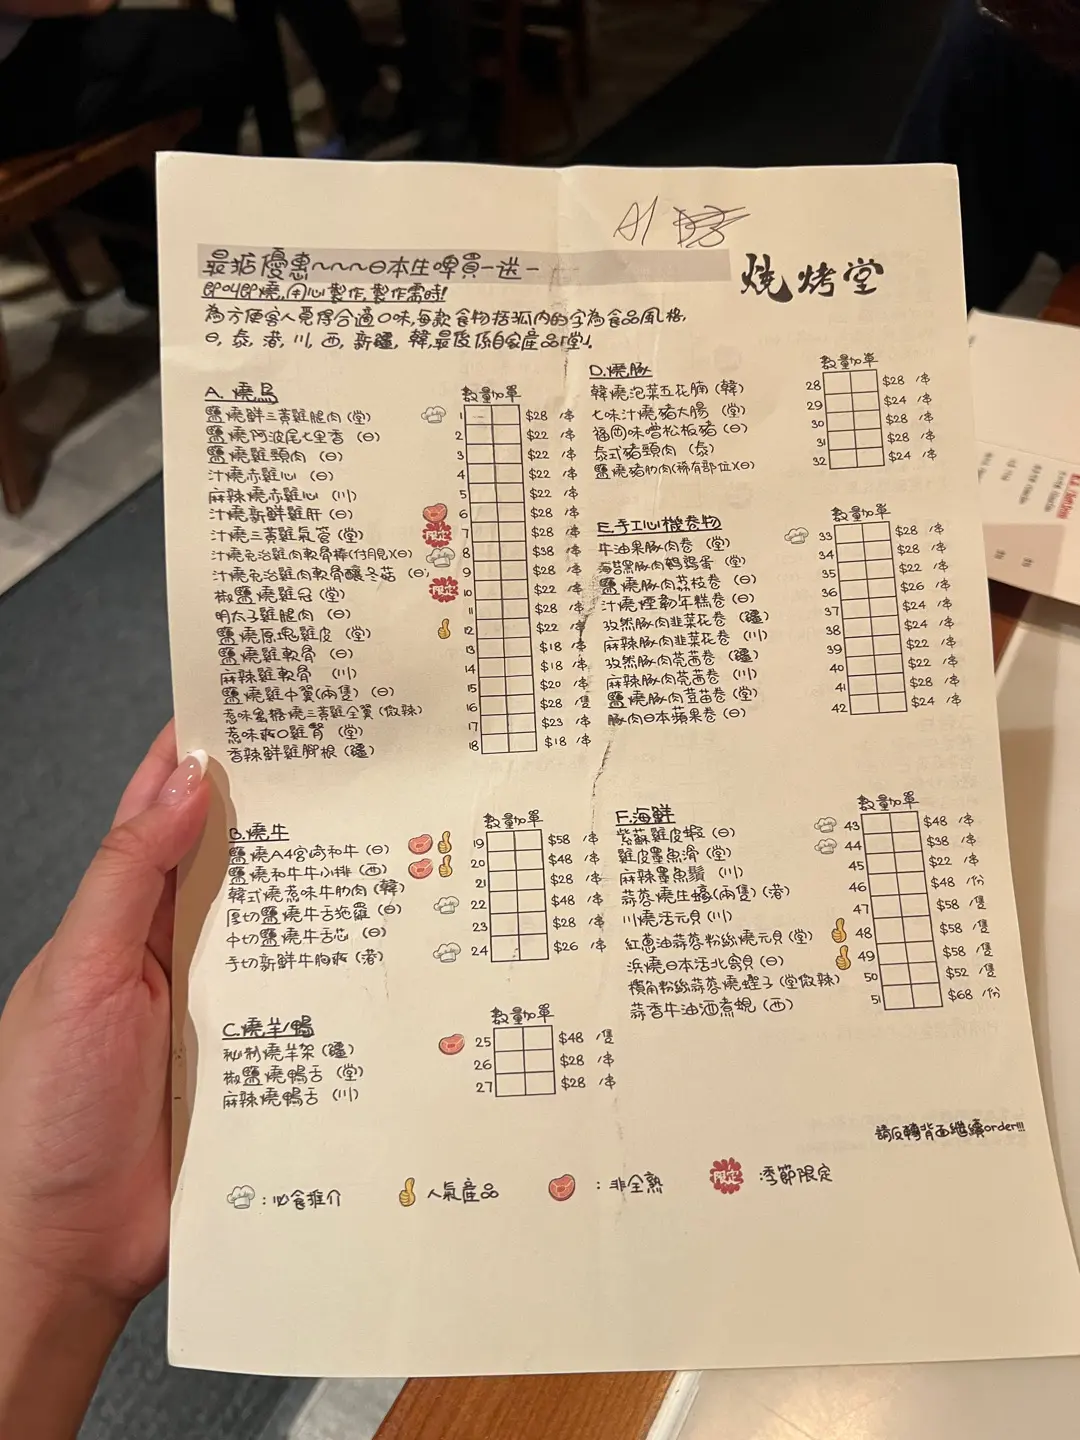 A1
最抵優惠～～～日本生啤買一送一
燒烤堂
即叫即燒,用心製作,製作需時!
為方便客人覓得合適口味,每款食物括弧内的字為食品風格,
日, 泰, 港, 川, 西, 新疆, 韓,最後係自家產品「堂」.
A. 燒鳥 數量 加單
鹽燒鮮三黃雞腿肉 (堂) 1 $28 /串
鹽燒阿波尾七里香 (日) 2 $22 /串
鹽燒雞頸肉 (日) 3 $22 /串
汁燒赤雞心 (日) 4 $22 /串
麻辣燒赤雞心 (川) 5 $22 /串
汁燒新鮮雞肝 (日) 6 $28 /串
汁燒三黃雞氣管 (堂) 限定 7 $28 /串
汁燒免治雞肉軟骨棒(付月見)(日) 8 $38 /串
汁燒免治雞肉軟骨釀冬菇 (日) 9 $28 /串
椒鹽燒雞冠 (堂) 限定 10 $22 /串
明太子雞腿肉 (日) 11 $28 /串
鹽燒原塊雞皮 (堂) 12 $22 /串
鹽燒雞軟骨 (日) 13 $18 /串
麻辣雞軟骨 (川) 14 $18 /串
鹽燒雞中翼(兩隻) (日) 15 $20 /串
惹味蜜糖燒三黃雞全翼 (微辣) 16 $28 /隻
惹味爽口雞腎 (堂) 17 $23 /串
香辣鮮雞腳根 (疆) 18 $18 /串
B. 燒牛 數量 加單
鹽燒A4宮崎和牛 (日) 19 $58 /串
鹽燒和牛牛小排 (西) 20 $48 /串
韓式燒惹味牛肋肉 (韓) 21 $28 /串
厚切鹽燒牛舌拖羅 (日) 22 $48 /串
中切鹽燒牛舌芯 (日) 23 $28 /串
手切新鮮牛胸爽 (港) 24 $26 /串
C. 燒羊/鴨 數量 加單
秘制燒羊架 (疆) 25 $48 /隻
椒鹽燒鴨舌 (堂) 26 $28 /串
麻辣燒鴨舌 (川) 27 $28 /串
D. 燒豚 數量 加單
韓燒泡菜五花腩 (韓) 28 $28 /串
七味汁燒豬大腸 (堂) 29 $24 /串
福岡味噌松板豬 (日) 30 $28 /串
泰式豬頸肉 (泰) 31 $28 /串
鹽燒豬肋肉(稀有部位)(日) 32 $24 /串
E. 手工心機卷物 數量 加單
牛油果豚肉卷 (堂) 33 $28 /串
海苔黑豚肉鵪鶉蛋 (堂) 34 $28 /串
鹽燒豚肉荔枝卷 (日) 35 $22 /串
汁燒煙勒年糕卷 (日) 36 $26 /串
孜然豚肉韭菜花卷 (疆) 37 $24 /串
麻辣豚肉韭菜花卷 (川) 38 $24 /串
孜然豚肉芫茜卷 (疆) 39 $22 /串
麻辣豚肉芫茜卷 (川) 40 $22 /串
鹽燒豚肉荳苗卷 (堂) 41 $28 /串
豚肉日本蘋果卷 (日) 42 $24 /串
F. 海鮮 數量 加單
紫蘇雞皮蝦 (日) 43 $48 /串
雞皮墨魚滑 (堂) 44 $38 /串
麻辣墨魚鬚 (川) 45 $22 /串
蒜蓉燒生蠔(兩隻) (港) 46 $48 /份
川燒活元貝 (川) 47 $58 /隻
紅蔥油蒜蓉粉絲燒元貝 (堂) 48 $58 /隻
浜燒日本活北寄貝 (日) 49 $58 /隻
欖角粉絲蒜蓉燒蟶子 (堂微辣) 50 $52 /隻
蒜香牛油酒煮蜆 (西) 51 $68 /份
請反轉背面繼續order!!!
: 必食推介
人氣產品
: 非全熟
限定 季節限定